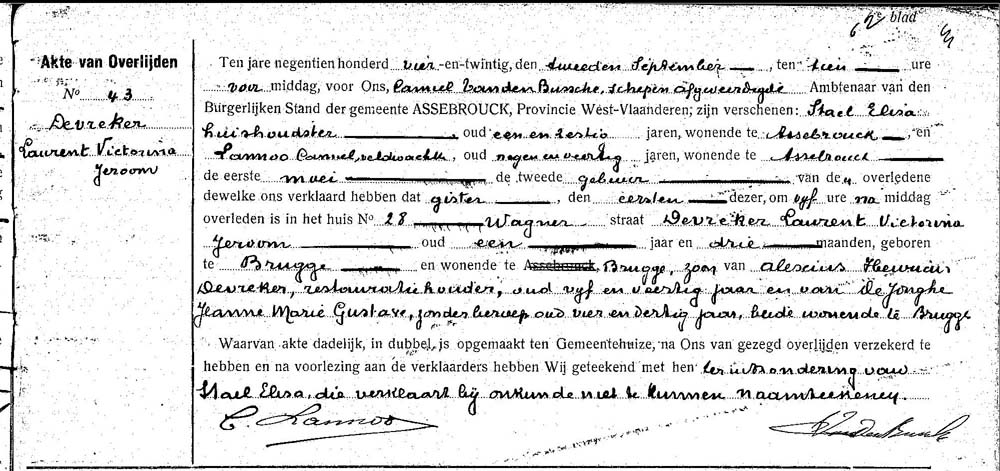 6 2e blad
Akte van Overlijden
No 43
Devreker
Laurent Victorina
Jeroom
Ten jare negentien honderd vier -en-twintig, den tweeden September, ten tien ure
voor middag, voor Ons, Camiel Vanden Bussche, schepen afgeweerdigde Ambtenaar van den
Burgerlijken Stand der gemeente ASSEBROUCK, Provincie West-Vlaanderen; zijn verschenen: Stael Elisa
huishoudster, oud een en zestig jaren, wonende te Assebrouck, en
Lannoo Camiel, veldwachter, oud negen en veertig jaren, wonende te Assebrouck
de eerste moei de tweede gebuur van den overledene
dewelke ons verklaard hebben dat gister, den eersten dezer, om vyf ure na middag
overleden is in het huis No 28 Wagner straat Devreker Laurent Victorina
Jeroom oud een jaar en drie maanden, geboren
te Brugge en wonende te Assebrouck, Brugge, zoon van Alexius Henricus
Devreker, restauratiehouder, oud vyf en veertig jaar en van De Jonghe
Jeanne Marie Gustave, zonder beroep oud vier en dertig jaar, beide wonende te Brugge
Waarvan akte dadelijk, in dubbel, is opgemaakt ten Gemeentehuize, na Ons van gezegd overlijden verzekerd te
hebben en na voorlezing aan de verklaarders hebben Wij geteekend met hen ter uitzondering van
Stael Elisa, die verklaart bij onkunde niet te kunnen naamteekenen.
C. Lannoo VandenBussche